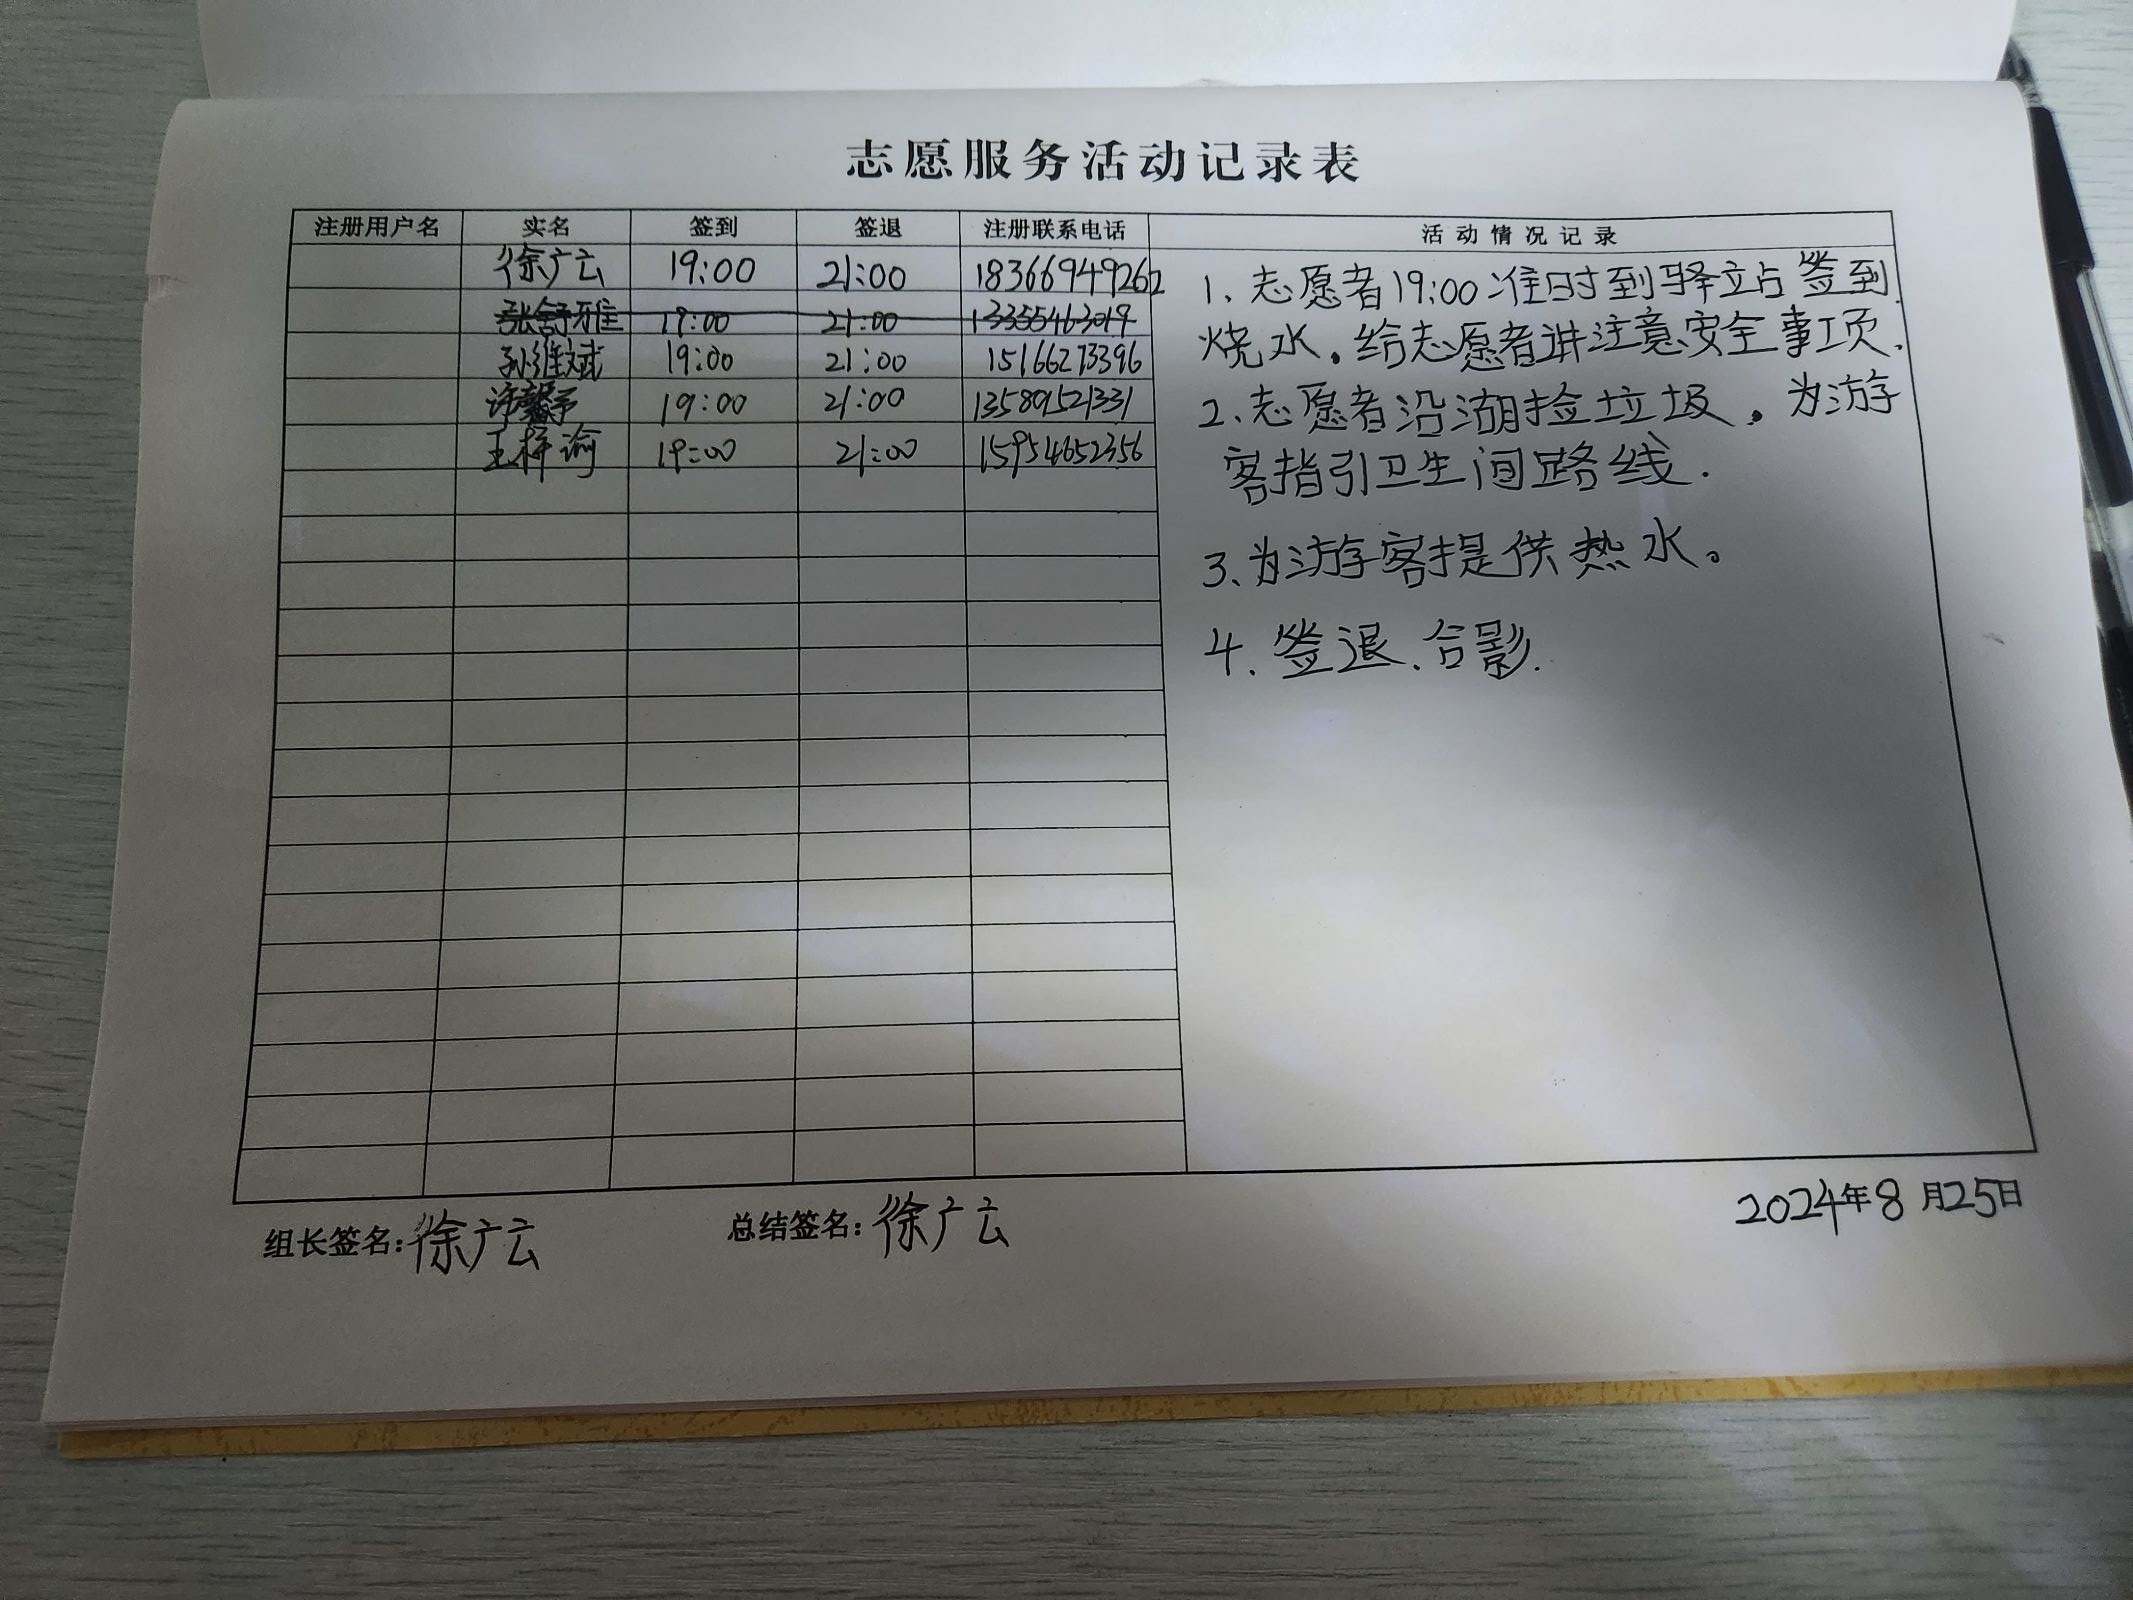 志愿服务活动记录表
注册用户名 实名 签到 签退 注册联系电话 活动情况记录
徐广云 19:00 21:00 18366949262
张舒雅 19:00 21:00 13355463019
孙维斌 19:00 21:00 15166273396
许馨予 19:00 21:00 13589521331
王梓谕 19:00 21:00 15954652356
1、志愿者19:00准时到驿站签到.
烧水。给志愿者讲注意安全事项.
2、志愿者沿湖捡垃圾。为游
客指引卫生间路线.
3、为游客提供热水。
4.签退.合影.
组长签名:徐广云 总结签名:徐广云 2024年8月25日